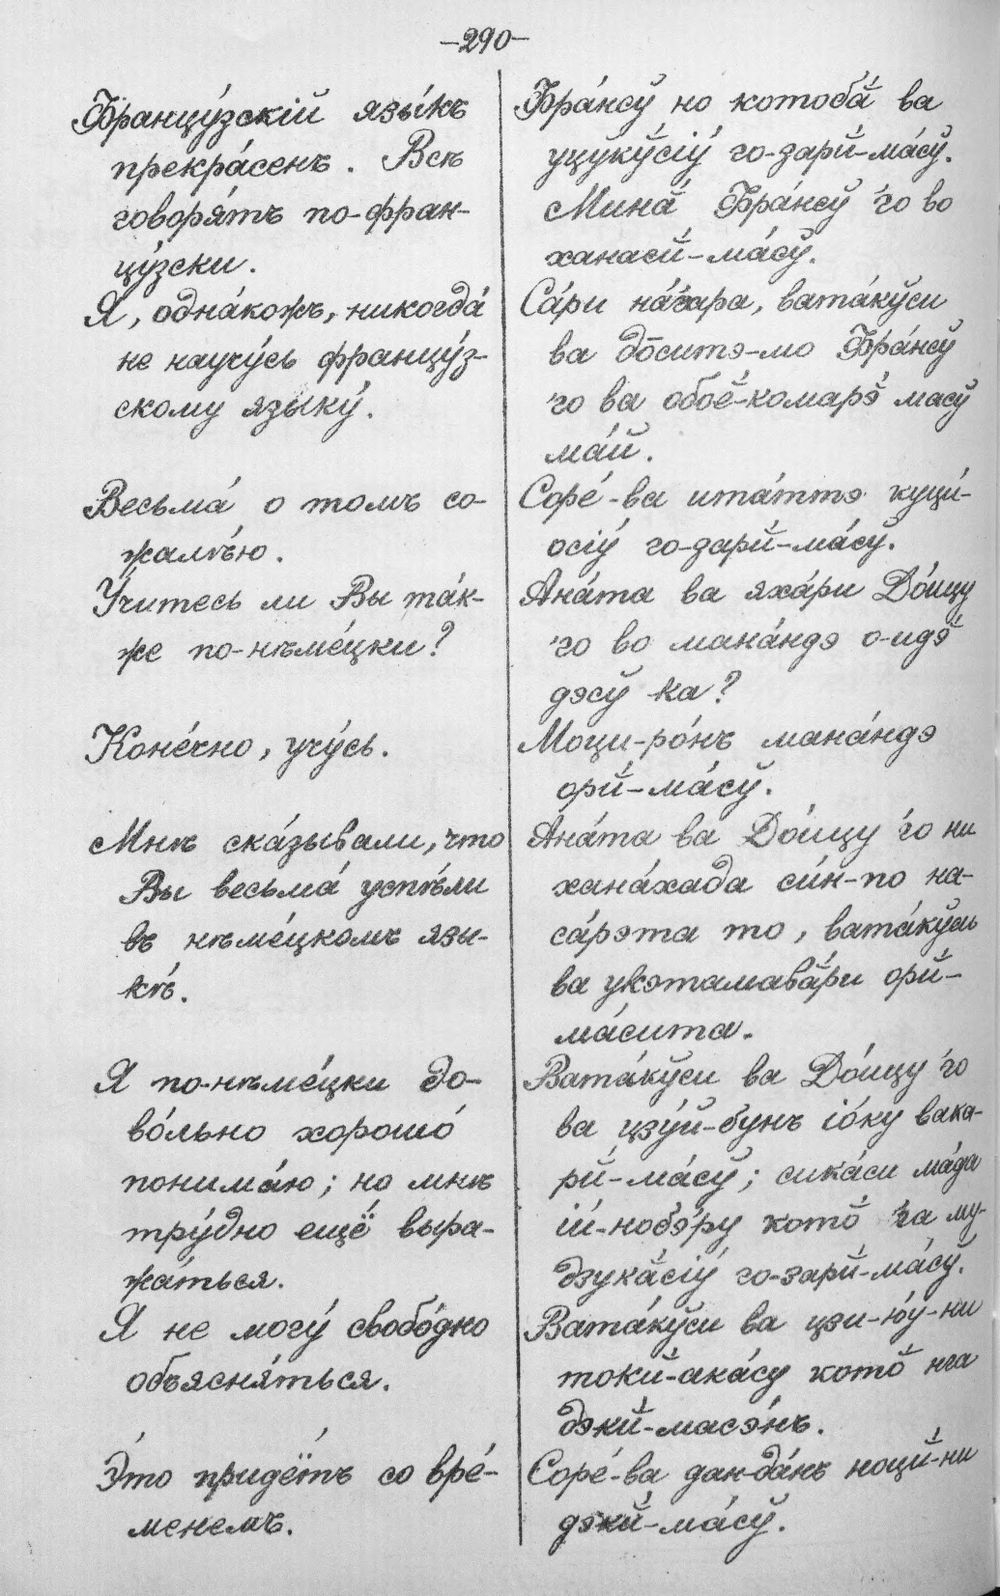 –290–
Францу́зскій язы́къ
прекра́сенъ. Всѣ
говоря́тъ по-фран-
цу́зски.
Я, одна́кожъ, никогда́
не научу́сь францу́з-
скому языку́.
Весьма́ о томъ со-
жалѣ́ю.
У́читесь ли Вы та́к-
же по-нѣме́цки?
Коне́чно, учу́сь.
Мнѣ ска́зывали, что
Вы весьма́ успѣ́ли
въ нѣме́цкомъ язы-
кѣ́.
Я по-нѣме́цки до-
во́льно хорошо́
понима́ю; но мнѣ
тру́дно ещё выра-
жа́ться.
Я не могу́ свобо́дно
объясня́ться.
Э́то придётъ со вре́-
менемъ.
Фра́нсў но котобӑ ва
уцукŷсіў го-зарй-ма́сў.
Мина́ Фра́нсў го во
ханасй-ма́сў.
Са́ри на́гара, вата́кўси
ва до̄ситэ-мо Фра́нсў
го ва обоё-комарэ̆ масў
ма́й.
Соре́-ва ита́ттэ куци́-
осіў го-зарй-ма́сў.
Ана́та ва яха́ри До́ицу
го во мана́ндэ о-идэ̆
дэсў ка?
Моци-ро́нъ мана́ндэ
орй-ма́сў.
Ана́та ва До́ицу го ни
хана́хада си́н-по на-
са́рэта то, вата́кўси
ва укэтамавӑри орй-
ма́сита.
Вата́кўси ва До́ицу го
ва цзу́й-бунъ іо́ку вака-
рй-ма́сў; сика́си ма́да
ій-нобэ́ру кото̆ га му-
дзукӑсіў го-зарй-ма́сў.
Вата́кўси ва цзи-ю́у-ни
токй-ака́су кото̆ нга
дэкй-масэ́нъ.
Соре́-ва дан-да́нъ ноцй-ни
дэкй-ма́сў.